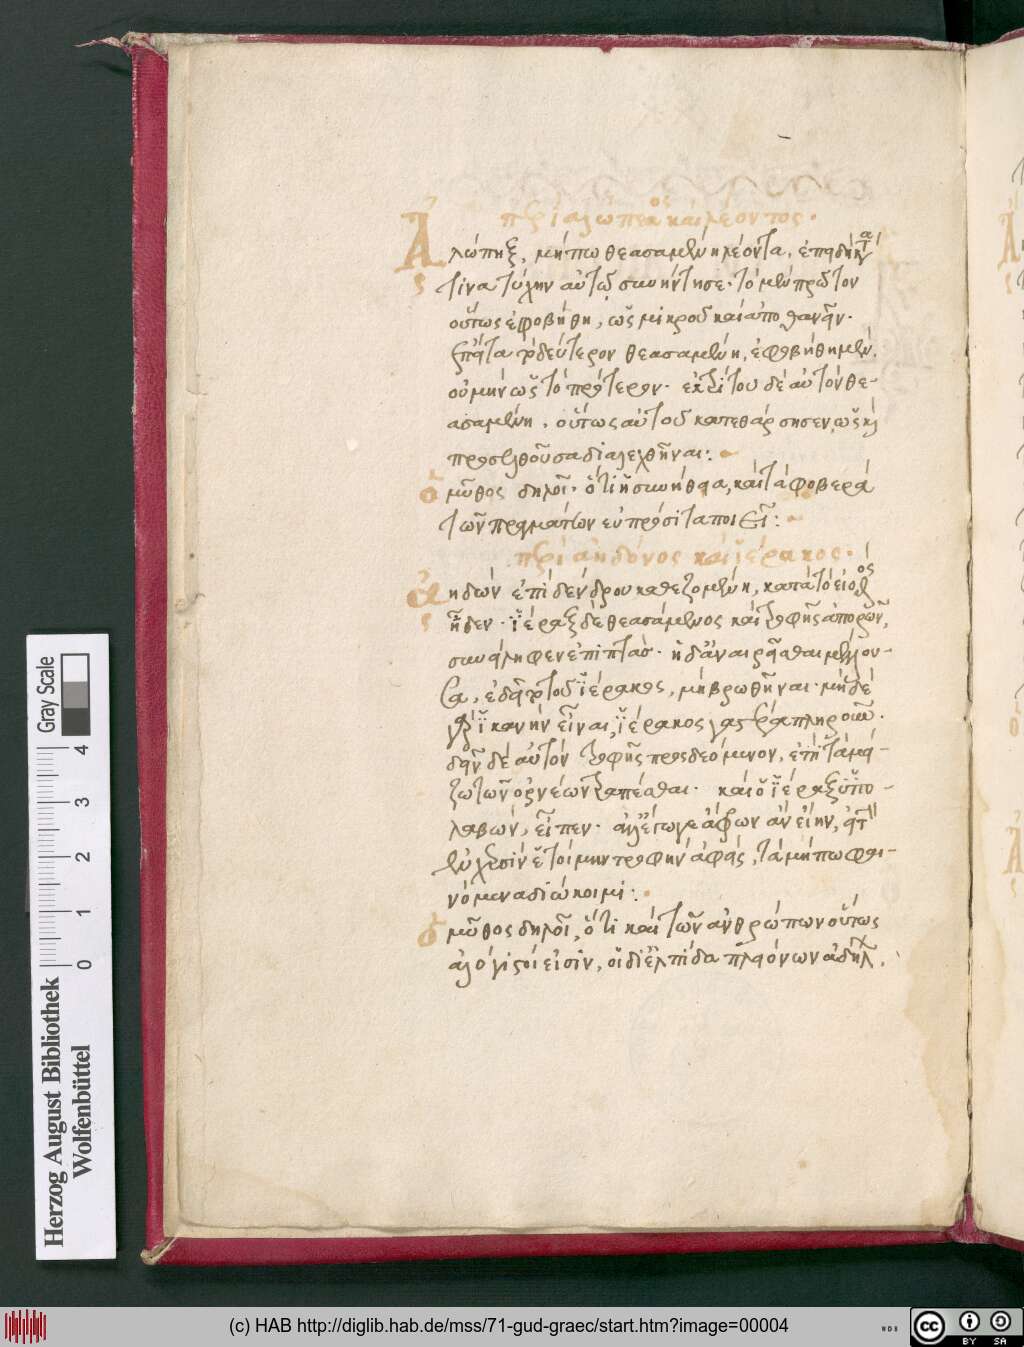 περὶ ἀλώπεκος καὶ λέοντος.
Ἀλώπηξ, μήπω θεασαμένη λέοντα, ἐπειδὴ κατά
τινα τύχην αὐτῷ συνήντησε· τὸ μὲν πρῶτον
οὕτως ἐφοβήθη, ὡς μικροῦ καὶ ἀποθανεῖν.
ἔπειτα δεύτερον θεασαμένη, ἐφοβήθη μέν,
οὐ μὴν ὡς τὸ πρότερον. ἐκ τρίτου δὲ αὐτὸν θε-
ασαμένη, οὕτως αὐτοῦ κατεθάρσησεν, ὡς καὶ
προσελθοῦσα διαλεχθῆναι:
ὁ μῦθος δηλοῖ· ὅτι ἡ συνήθεια, καὶ τὰ φοβερὰ
τῶν πραγμάτων εὐπρόσιτα ποιεῖ:
περὶ ἀηδόνος καὶ ἱέρακος.
ἀηδὼν ἐπὶ δένδρου καθεζομένη, κατὰ τὸ εἰωθὸς
ᾖδεν· ἱέραξ δὲ θεασάμενος καὶ τροφῆς ἀπορῶν,
συνείληφεν ἐπιπτάς· ἡ δὲ ἀναιρεῖσθαι μέλλου-
σα, ἐδεῖτο τοῦ ἱέρακος, μὴ βρωθῆναι· μηδὲ
γὰρ ἱκανὴν εἶναι, ἱέρακος γαστέρα πληροῦν.
δεῖν δὲ αὐτὸν τροφῆς προσδεόμενον, ἐπὶ τὰ μεί-
ζω τῶν ὀρνέων τραπέσθαι. καὶ ὁ ἱέραξ ὑπο-
λαβὼν, εἶπεν· ἀλλ' ἔγωγε ἄφρων ἂν εἴην, εἰ τὴν
ἐν χερσὶν ἕτοιμην τροφὴν ἀφεὶς, τὰ μήπω φαι-
νόμενα διώκοιμι:
ὁ μῦθος δηλοῖ, ὅτι καὶ τῶν ἀνθρώπων οὕτως
ἀλόγιστοί εἰσιν, οἳ δι' ἐλπίδα πλειόνων ἀδήλων
Herzog August Bibliothek
Wolfenbüttel
Gray Scale
0 1 2 3 4
(c) HAB http://diglib.hab.de/mss/71-gud-graec/start.htm?image=00004
WDB
cc BY SA